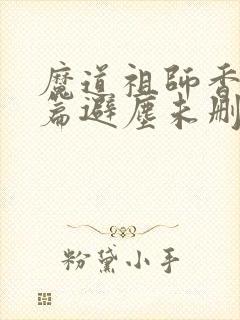 魔道祖師香
篇避塵未刪
粉黛小手